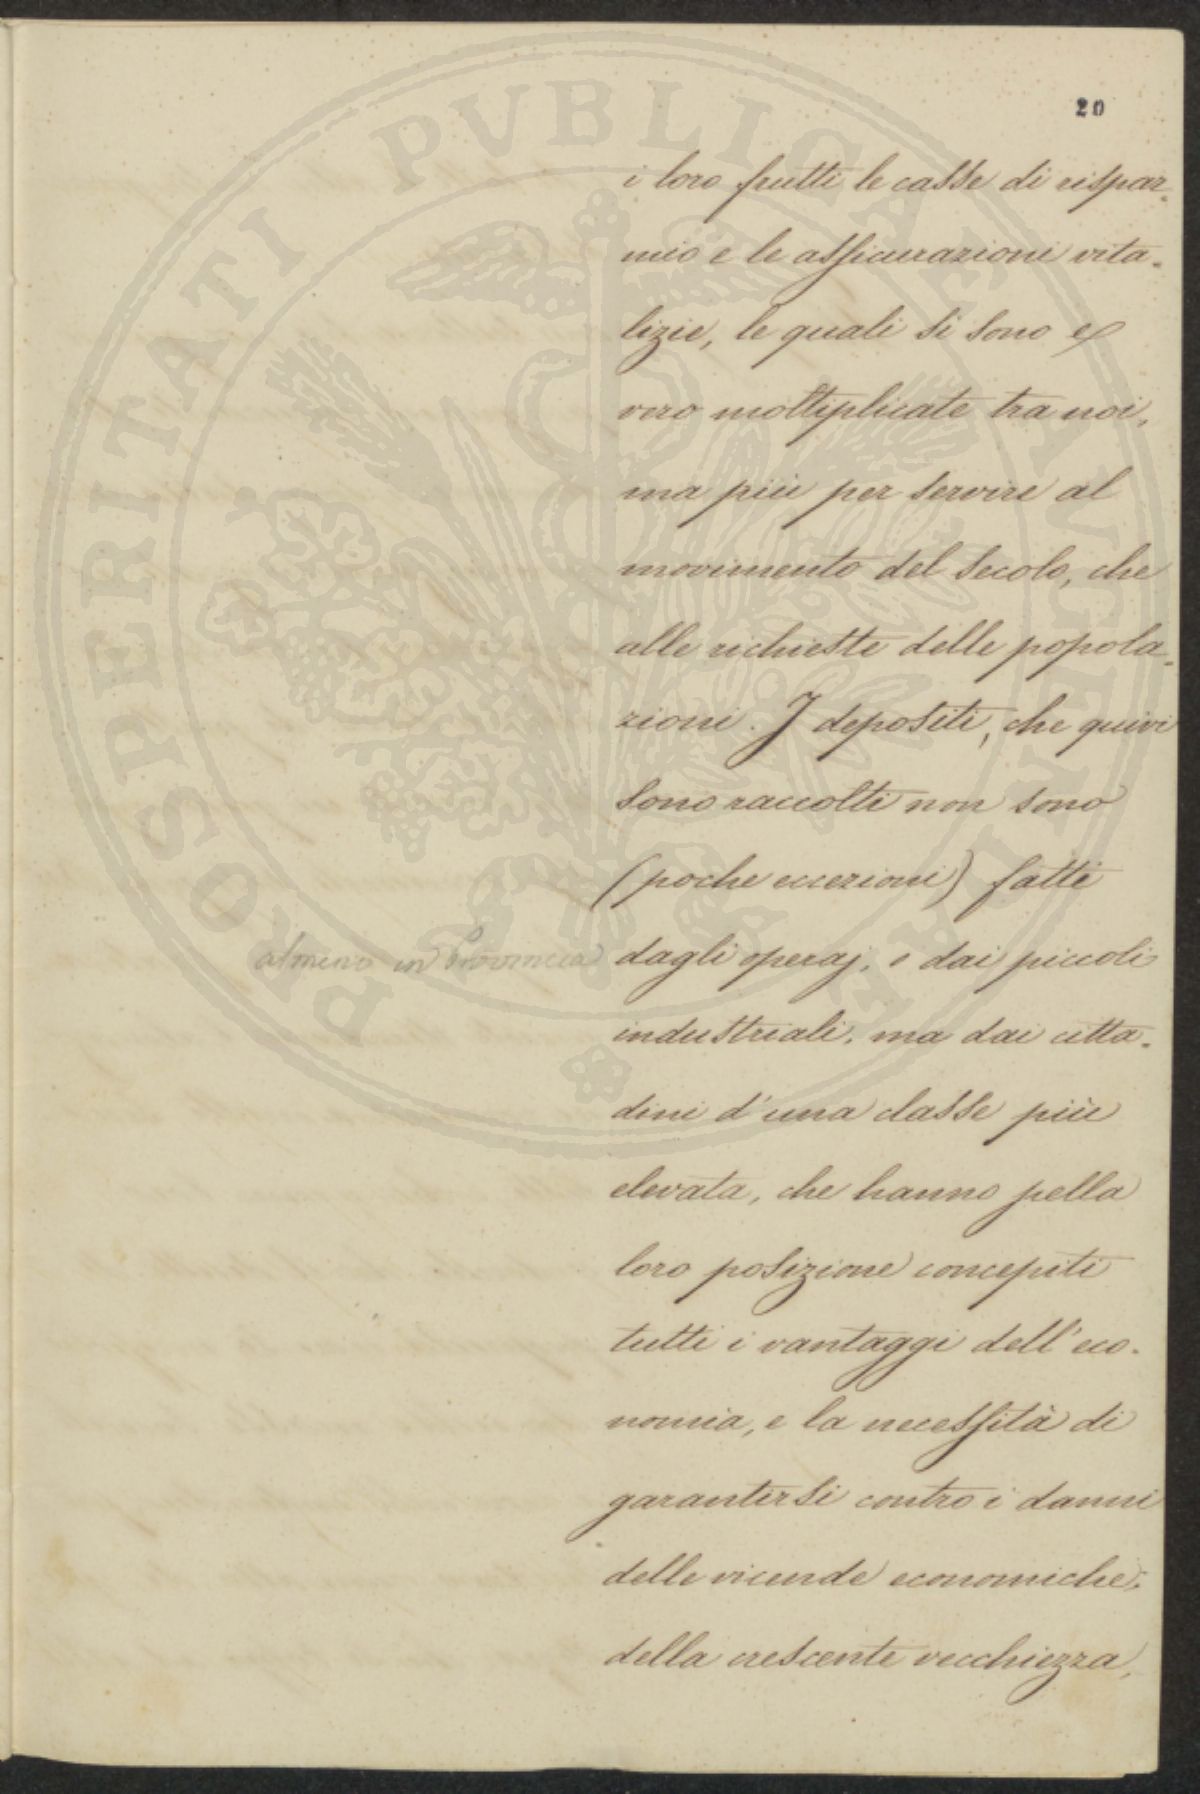 20
i loro frutti le casse di rispar-
mio e le assicurazioni vita-
lizie, le quali si sono e
vero moltiplicate tra noi,
ma più per servire al
movimento del secolo, che
alle richieste delle popola-
zioni. I depositi, che quivi
sono raccolti non sono
(poche eccezioni) fatti
almeno in Provincia
dagli operaj, o dai piccoli
industriali, ma dai citta-
dini d'una classe più
elevata, che hanno pella
loro posizione concepiti
tutti i vantaggi dell'eco-
nomia, e la necessità di
garantirsi contro i danni
delle vicende economiche,
della crescente vecchiezza,
PROSPERITATI PVBLICAE AVGENDAE